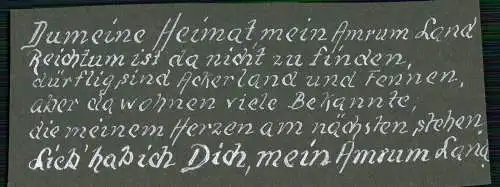 Du meine Heimat, mein Amrum Land
Reichtum ist da nicht zu finden,
dürftig sind Ackerland und Fennen,
aber da wohnen viele Bekannte,
die meinem Herzen am nächsten stehen.
Lieb' hab ich Dich, mein Amrum Land